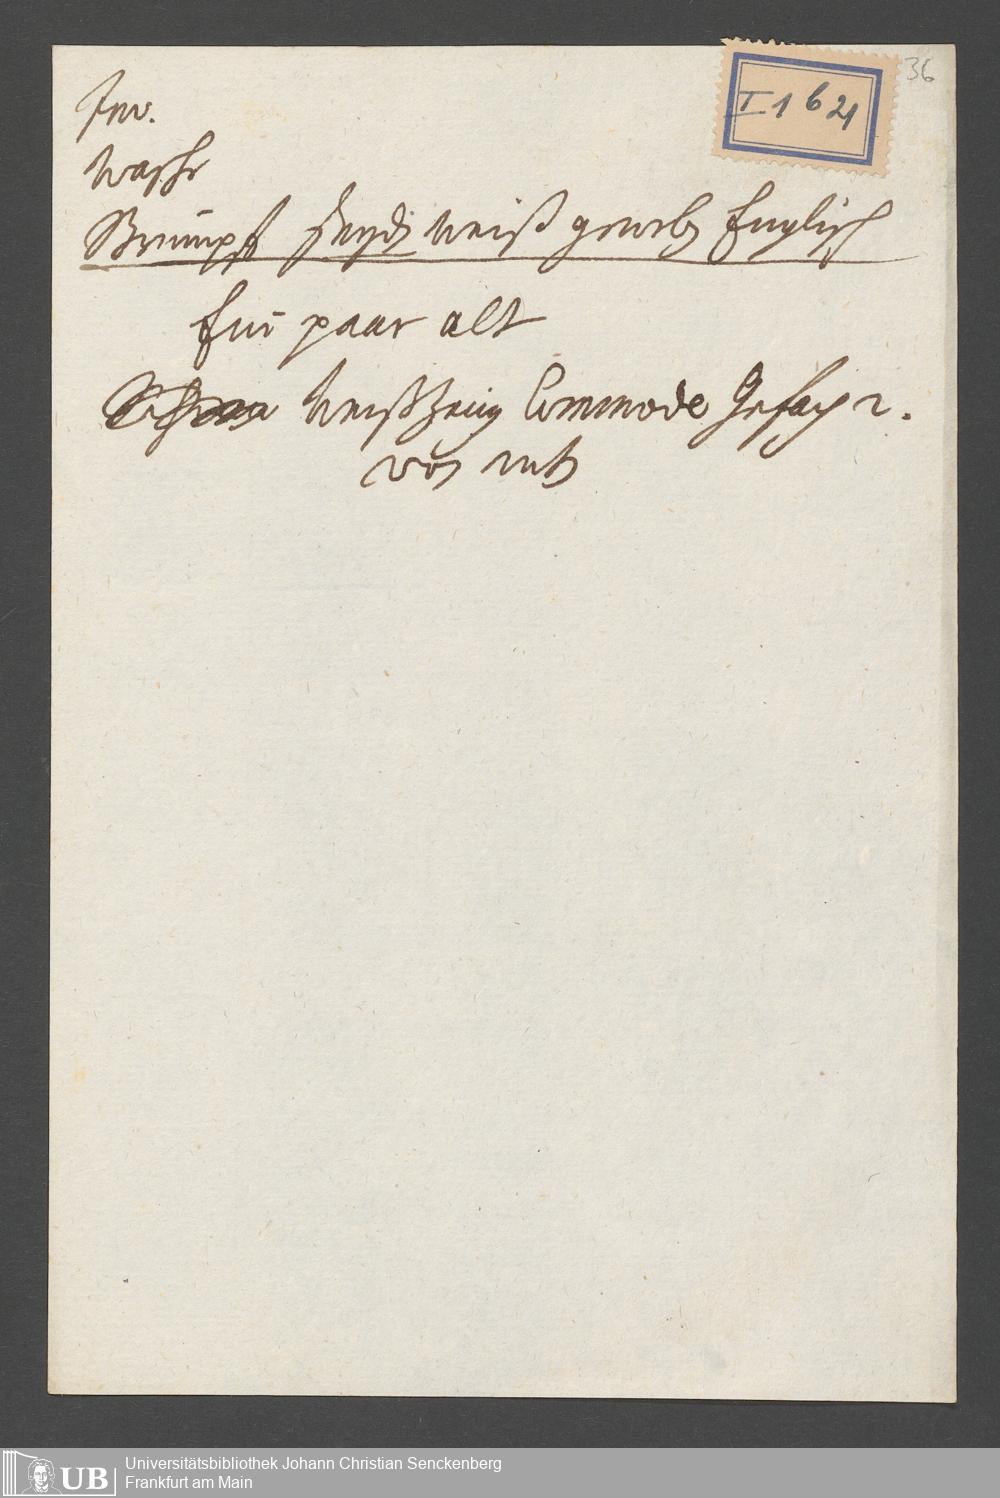 36
I 1621
Inv.
Wasche
Strümpf seyd. weiß gewebt Englisch
Ein paar alt
Weißzeug Commode Gefach 2.
von
UB
Universitätsbibliothek Johann Christian Senckenberg
Frankfurt am Main